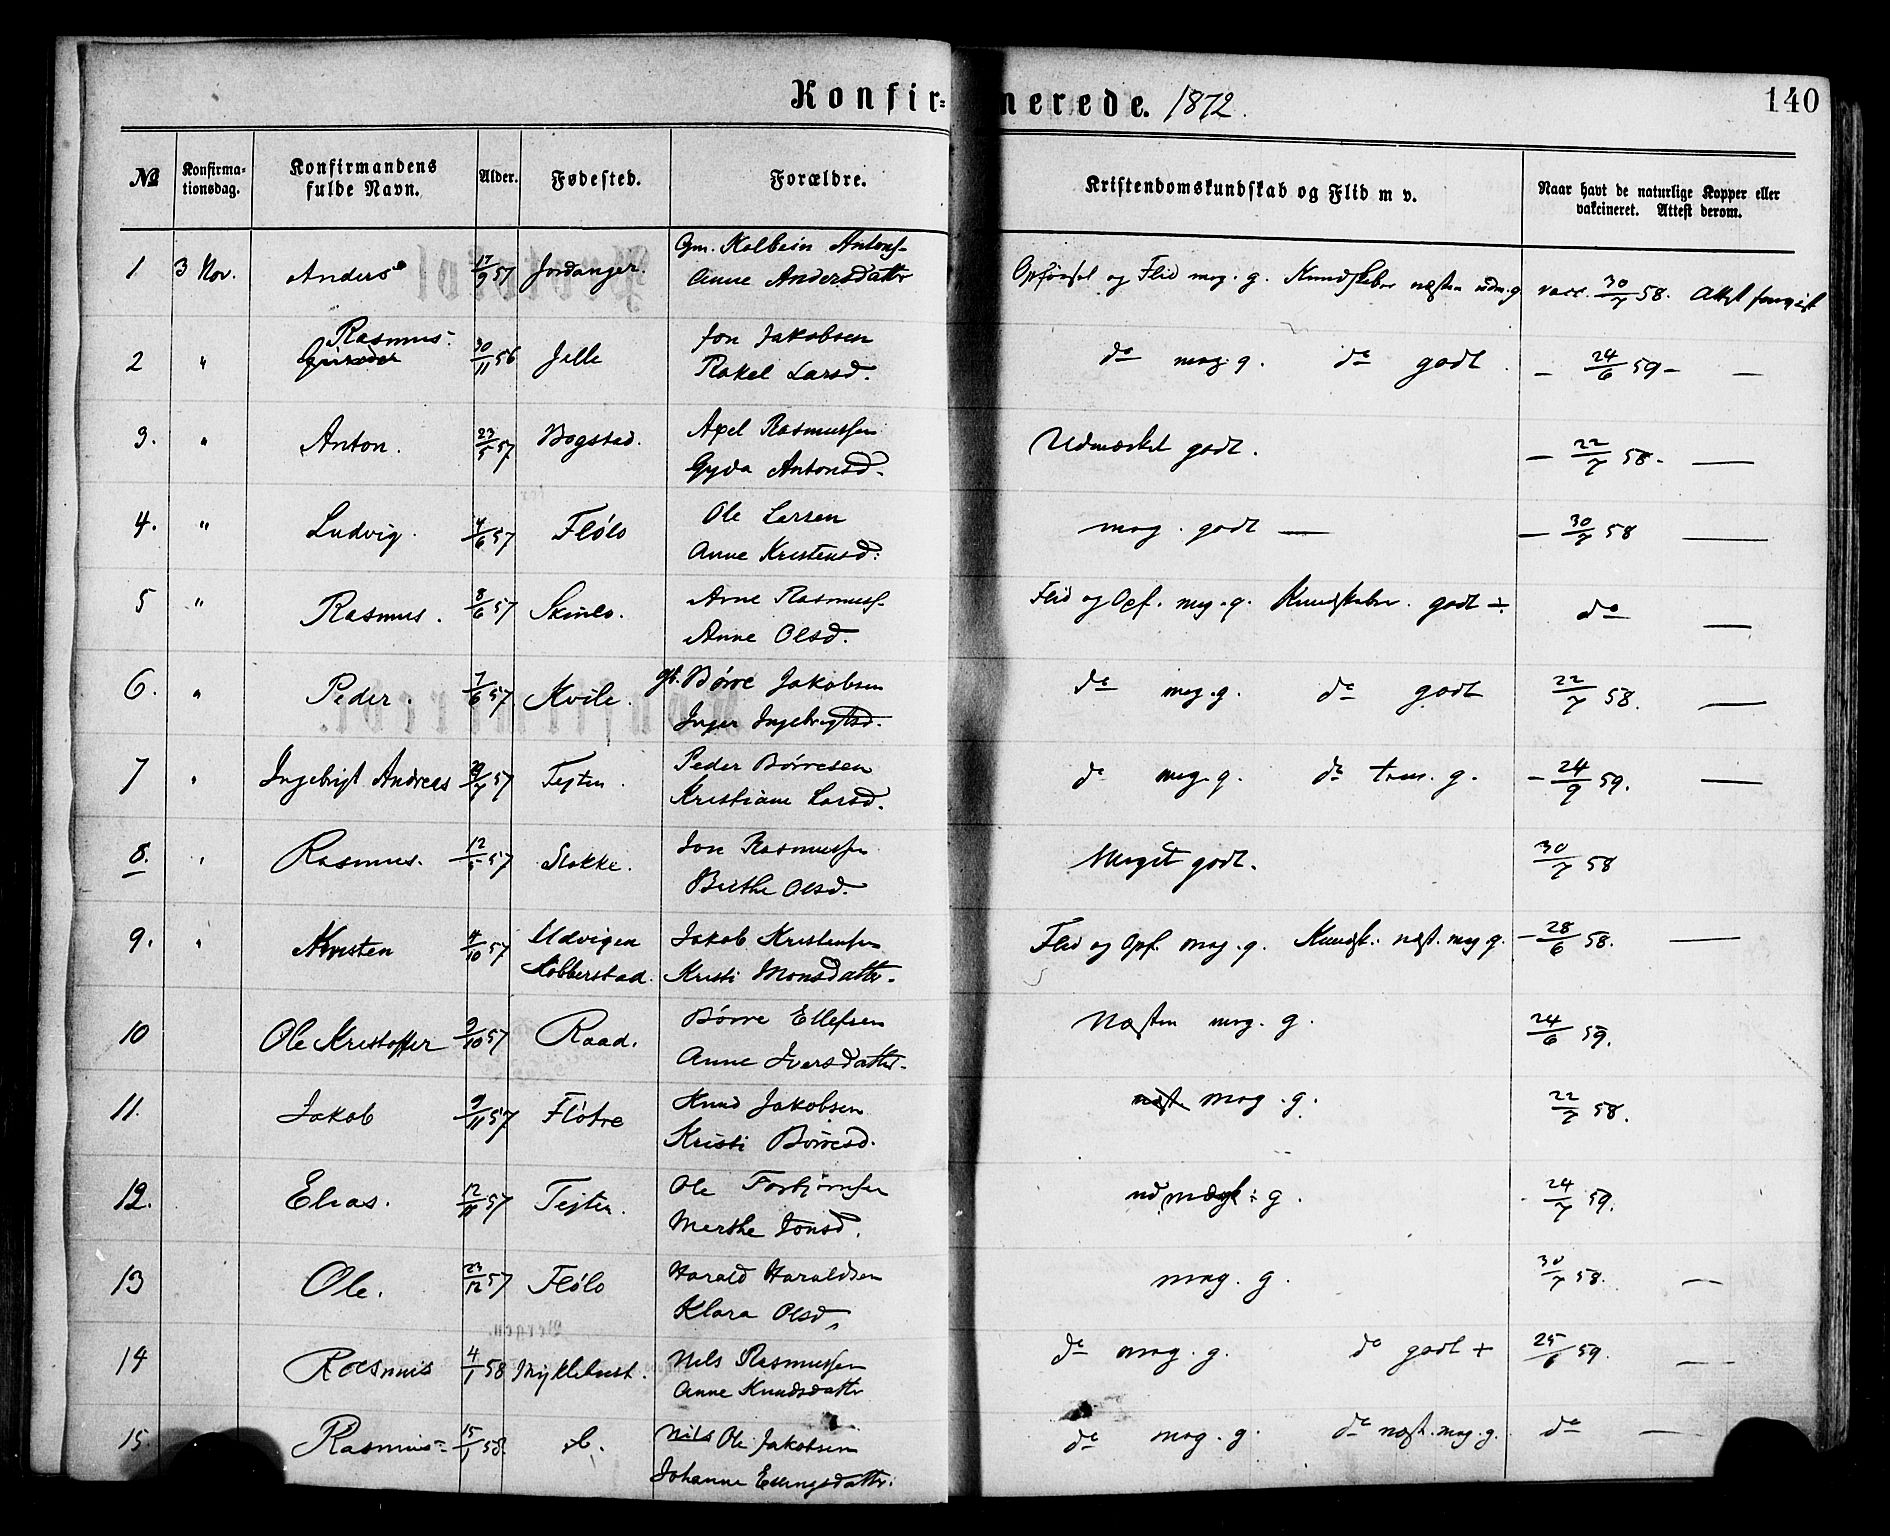 Konfirmerede. 1872.
140
№
Konfirmationsdag.
Konfirmandens fulde Navn.
Alder.
Fødested.
Forældre.
Kristendomskundskab og Flid m v.
Naar havt de naturlige Kopper eller vakcineret. Attest derom.
1 3 Nov. Anders 17/9 57 Jordanger. Gm. Kolbein Antons- Opførsel og Flid meg. g. Kundskaber næsten udm. g vacc. 30/7 58. Attest
Anne Andersdatter
2 " Rasmus 30/11 56 Jelle Jon Jakobsen do meg. g. do godt. - 24/6 59 - -
Rakel Larsd.
3. " Anton. 23/5 57 Bogstad. Axel Rasmussen Udmærket godt. - 22/7 58. -
Gyda Antonsd.
4. " Ludvig. 4/6 57 Flólo Ole Larsen meg. godt - - 30/7 58 -
Anne Kristensd.
5 " Rasmus. 8/6 57 Arne Rasmuss- Flid og Opf. meg. g. Kundskaber. godt ÷ do -
Anne Olsd.
6. " Peder. 7/6 57 Kvile. gb. Børre Jakobsen do meg. g. do godt 22/7 58. -
Inger Ingebrigtsd.
7 " Ingebrigt Andreas 57 Tejten. Peder Børresen do meg. g. do tem. g. - 24/9 59. -
Kristiane Larsd.
8. " Rasmus. 12/5 57 Stokke. Jon Rasmussen Meget godt. 30/7 58
Birthe Olsd.
9. " Kristen 11/10 57 Udvigen Jakob Kristensen Flid og Opf. meg. g. Kundsk.: næst. meg g. - 28/6 58. -
Hobberstad. Kristi Monsdatter.
10 Ole Kristoffer 9/10 57 Raad. Børre Ellefsen Næsten meg. g. 24/6 59.
Anne Iversdatter.
11. Jakob 9/11 57 Flótre Knud Jakobsen næst. meg. g. 22/7 58.
Kristi Børresd.
12. Elias. 12/11 57 Tejten. Ole Torbjørnsen udmærk: g. 24/7 59.
Merthe Jonsd.
13 Ole. 23/12 57 Flólo Harald Haraldsen meg. g. 30/7 58. -
Klara Olsd.
14 Rasmus 4/1 58 Myklebust. Nils Rasmussen do meg. g. do godt + 25/6 59. -
Anne Knudsdatter
15. Rasmus 15/1 58. Nils Ole Jakobsen do meg. g. do næst. meg. g. do -
Johanne Ellingsdatter.